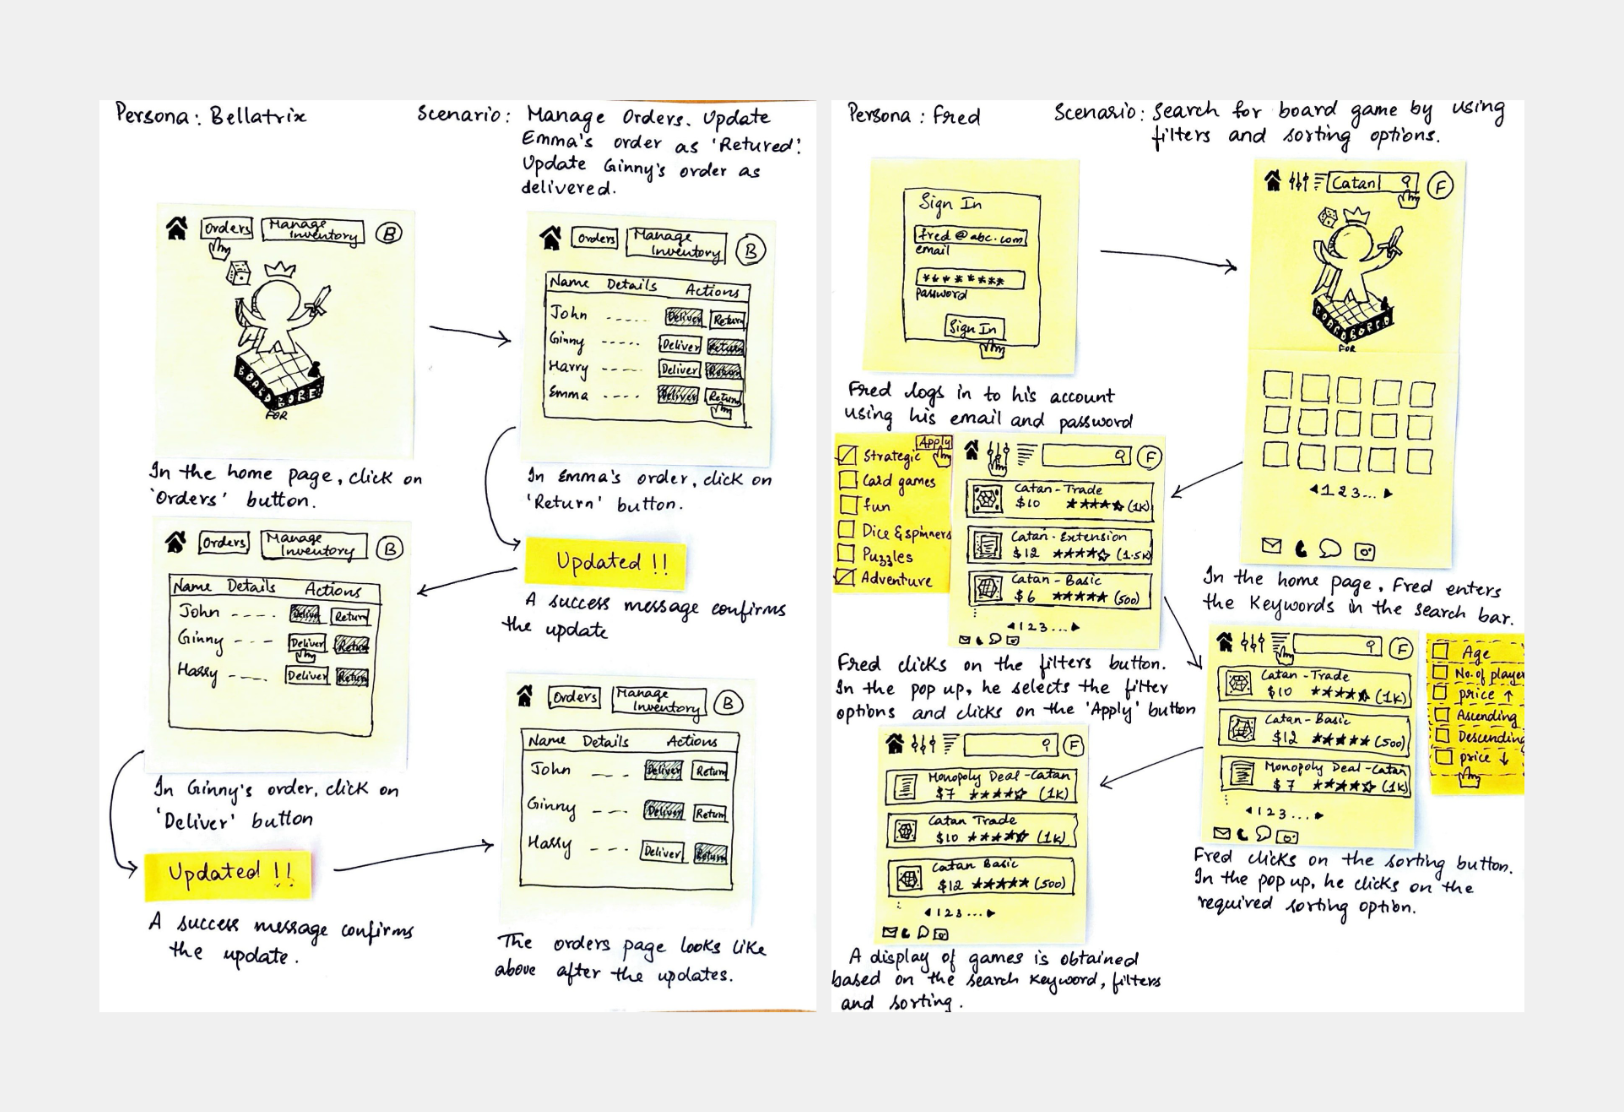 Persona: Bellatrix
Scenario: Manage Orders. Update
Emma's order as 'Retured'.
Update Ginny's order as
delivered.
Orders
Manage
Inventory
B
BOARD GORE!
FOR
In the home page, click on
'Orders' button.
Orders
Manage
Inventory
B
Name Details Actions
John Deliver Return
Ginny Deliver Return
Harry Deliver Return
Emma Deliver Return
In Emma's order, click on
'Return' button.
Updated !!
A success message confirms
the update
Orders
Manage
Inventory
B
Name Details Actions
John Deliver Return
Ginny Deliver Return
Harry Deliver Return
In Ginny's order, click on
'Deliver' button
Updated !!
A success message confirms
the update.
Orders
Manage
Inventory
B
Name Details Actions
John Deliver Return
Ginny Deliver Return
Harry Deliver Return
The orders page looks like
above after the updates.
Persona: Fred
Scenario: Search for board game by using
filters and sorting options.
Sign In
fred@abc.com
email
********
password
Sign In
Fred logs in to his account
using his email and password
Catan
F
FOR
1 2 3 ...
In the home page, Fred enters
the Keywords in the search bar.
Apply
Strategic
Card games
fun
Dice & spinners
Puzzles
Adventure
F
Catan-Trade
$10 (1K)
Catan-Extension
$12 (1.5K)
Catan-Basic
$6 (500)
1 2 3 ...
Fred clicks on the filters button.
In the pop up, he selects the filter
options and clicks on the 'Apply' button
F
Catan-Trade
$10 (1K)
Catan-Basic
$12 (500)
Monopoly Deal-Catan
$7 (1K)
1 2 3 ...
Age
No. of player
price ↑
Ascending
Descending
price ↓
Fred clicks on the sorting button.
In the pop up, he clicks on the
required sorting option.
F
Monopoly Deal-Catan
$7 (1K)
Catan Trade
$10 (1K)
Catan Basic
$12 (500)
1 2 3 ...
A display of games is obtained
based on the search keyword, filters
and sorting.